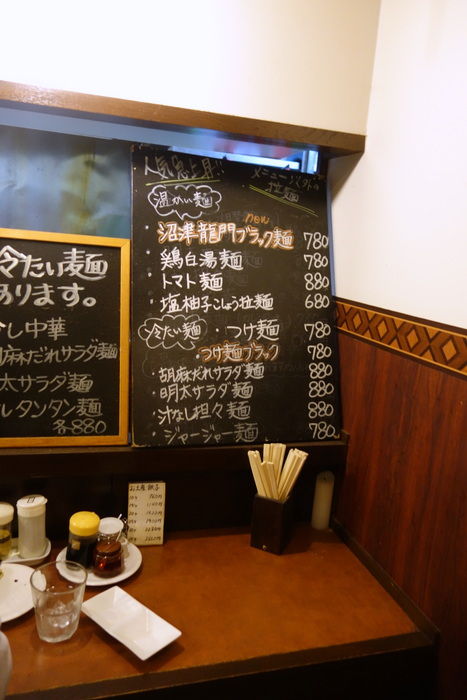 冷たい麺
あります。
し中華
麻だれサラダ麺
太サラダ麺
レタンタン麺
各880
人気急上昇!!
メニュー以外の
拉麺
温かい麺
new
沼津龍門ブラック麺 780
・鶏白湯麺 780
・トマト麺 880
・塩柚子こしょう拉麺 680
冷たい麺 ・つけ麺 780
・つけ麺ブラック 780
・胡麻だれサラダ麺 880
・明太サラダ麺 880
・汁なし担々麺 880
・ジャージャー麺 780
お土産餃子